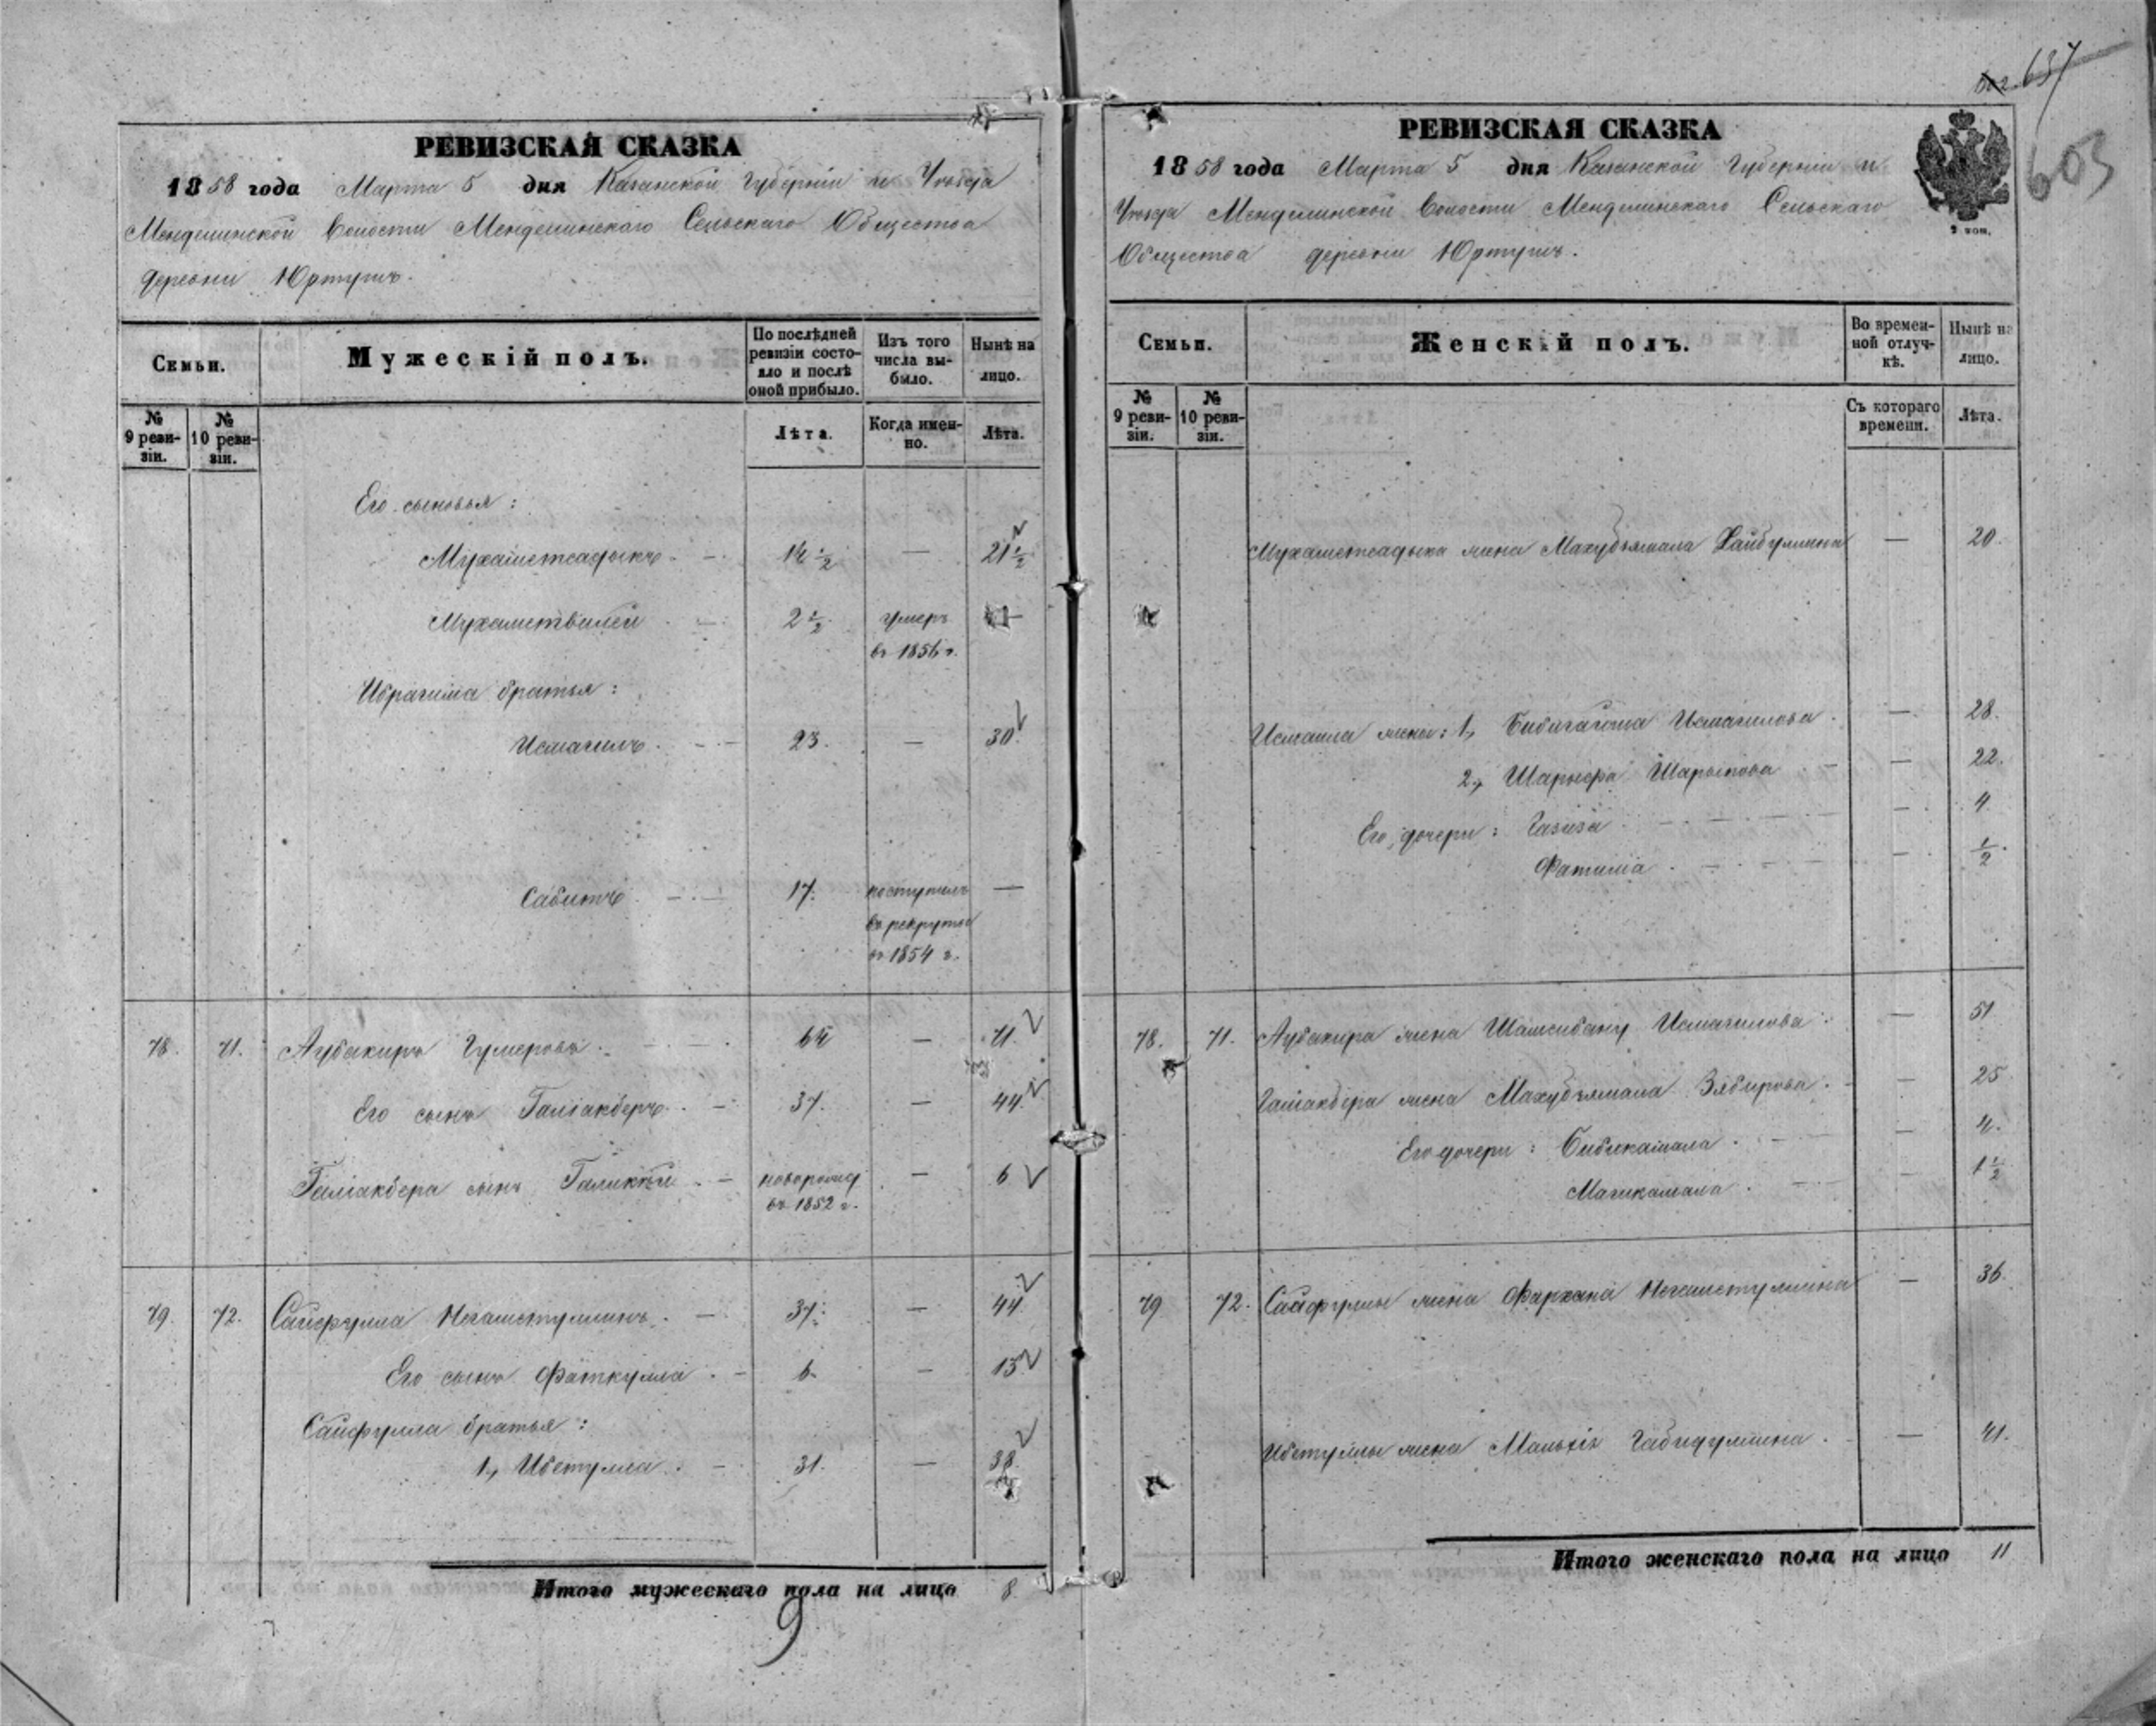 637
603
РЕВИЗСКАЯ СКАЗКА
1858 года Марта 5 дня Казанской Губерніи и Уѣзда
Менделинской Волости Менделинскаго Сельскаго Общества
деревни Юртушъ.
Семьи.
Мужескій полъ.
По послѣдней ревизіи состояло и послѣ оной прибыло.
Изъ того числа выбыло.
Нынѣ на лицо.
№ 9 ревизіи.
№ 10 ревизіи.
Лѣта.
Когда именно.
Лѣта.
Его сыновья:
Мухаметсадыкъ 14½ — 21½
Мухаметвалей 2½ умеръ —
въ 1856 г.
Ибрагима братья:
Исмагилъ 23. — 30.
Сабитъ 17. поступилъ —
въ рекруты
въ 1854 г.
78. 71. Аубакиръ Гумеровъ 64 — 71.
Его сынъ Галіакберъ 37. — 44.
Галіакбера сынъ новорожд — 6
въ 1852 г.
79. 72. Сайфулла Негаметуллинъ 37. — 44.
Его сынъ Фаткулла 6. — 13
Сайфулла братья:
1., Ибетулла 31. — 38.
Итого мужескаго пола на лицо 8.
9
РЕВИЗСКАЯ СКАЗКА
1858 года Марта 5 дня Казанской Губерніи и
Уѣзда Менделинской Волости Менделинскаго Сельскаго
Общества деревни Юртушъ.
2 коп.
Семьи.
Женскій полъ.
Во временной отлучкѣ.
Нынѣ на лицо.
№ 9 ревизіи.
№ 10 ревизіи.
Съ котораго времени.
Лѣта.
Мухаметсадыка жена Махубзямала — 20.
Исмаила жены: 1, Исмагилова — 28.
2., Шарифа Шарыпова — 22.
Его дочери: Газиза — 4
Фатима — ½.
78. 71. Аубакира жена Шамсибану Исмагилова — 51
Галіакбера жена Махубзямала Зябирова — 25
Его дочери: Бибикамала — 4.
Магикамала — 1½
79 72. Сайфуллы жена Фархана Негаметуллина — 36.
Ибетуллы жена Габидуллина — 41.
Итого женскаго пола на лицо 11